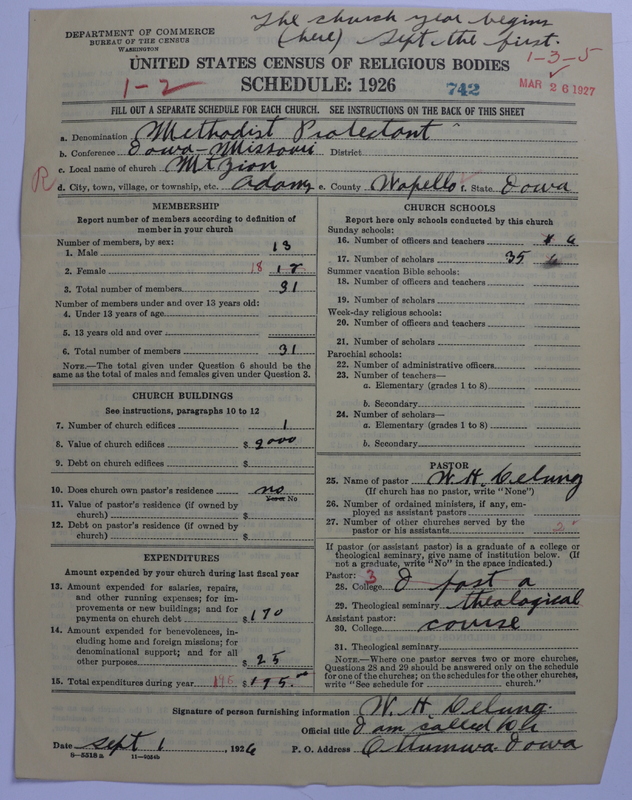 The church year begins
(here) Sept the first.
DEPARTMENT OF COMMERCE
BUREAU OF THE CENSUS
WASHINGTON
1-3-5
UNITED STATES CENSUS OF RELIGIOUS BODIES
1-2
SCHEDULE: 1926
742
MAR 26 1927
FILL OUT A SEPARATE SCHEDULE FOR EACH CHURCH. SEE INSTRUCTIONS ON THE BACK OF THIS SHEET
a. Denomination Methodist Protestant
b. Conference Iowa-Missouri District
c. Local name of church Mt Zion
R d. City, town, village, or township, etc. Adams e. County Wapello f. State Iowa
MEMBERSHIP
Report number of members according to definition of
member in your church
Number of members, by sex:
1. Male 13
2. Female 18
3. Total number of members 31
Number of members under and over 13 years old:
4. Under 13 years of age
5. 13 years old and over
6. Total number of members 31
NOTE.—The total given under Question 6 should be
same as the total of males and females given under Question 3.
CHURCH BUILDINGS
See instructions, paragraphs 10 to 12
7. Number of church edifices 1
8. Value of church edifices $ 2000
9. Debt on church edifices $
10. Does church own pastor's residence no
Yes or No
11. Value of pastor's residence (if owned by
church) $
12. Debt on pastor's residence (if owned by
church) $
EXPENDITURES
Amount expended by your church during last fiscal year
13. Amount expended for salaries, repairs,
and other running expenses; for im-
provements or new buildings; and for
payments on church debt $ 170
14. Amount expended for benevolences, in-
cluding home and foreign missions; for
denominational support; and for all
other purposes $ 25
15. Total expenditures during year 195 $ 195.00
CHURCH SCHOOLS
Report here only schools conducted by this church
Sunday schools:
16. Number of officers and teachers 6
17. Number of scholars 35
Summer vacation Bible schools:
18. Number of officers and teachers
19. Number of scholars
Week-day religious schools:
20. Number of officers and teachers
21. Number of scholars
Parochial schools:
22. Number of administrative officers
23. Number of teachers—
a. Elementary (grades 1 to 8)
b. Secondary
24. Number of scholars—
a. Elementary (grades 1 to 8)
b. Secondary
PASTOR
25. Name of pastor W. H. Clung
(If church has no pastor, write "None")
26. Number of ordained ministers, if any, em-
ployed as assistant pastors
27. Number of other churches served by the
pastor or his assistants 2
If pastor (or assistant pastor) is a graduate of a college or
theological seminary, give name of institution below. (If
not a graduate, write "No" in the space indicated.)
Pastor: 3
28. College I past a
29. Theological seminary theological
Assistant pastor:
30. College course
31. Theological seminary
NOTE.—Where one pastor serves two or more churches,
Questions 28 and 29 should be answered only on the schedule
for one of the churches; on the schedules for the other churches,
write "See schedule for church."
Signature of person furnishing information W. H. Clung.
Official title I am called
Date Sept 1, 1926 P. O. Address Ottumwa Iowa
8-5518 a 11-9034b